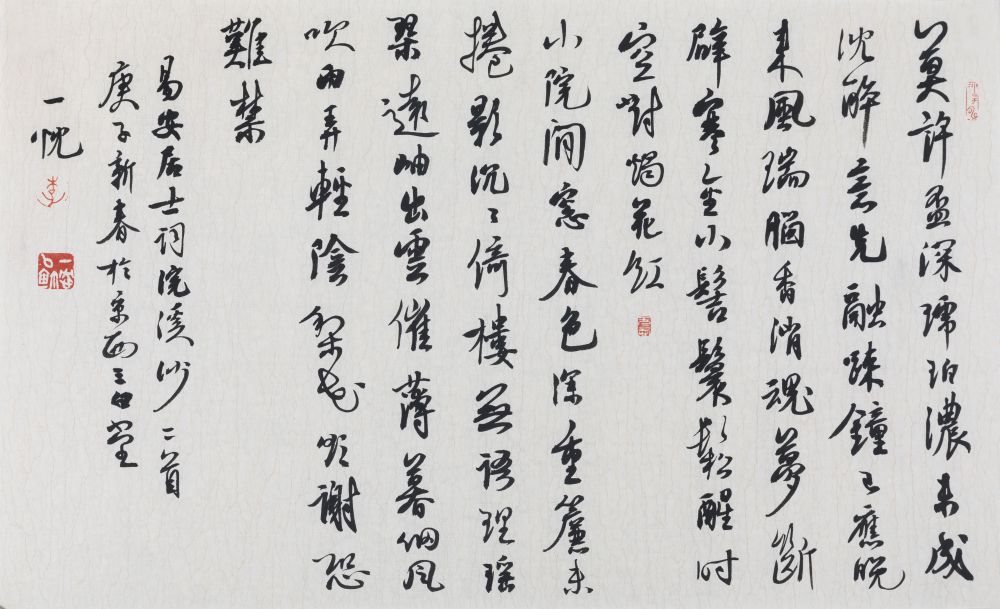 莫許盃深琥珀濃未成
沈醉意先融踈鐘已應晚
来風瑞腦香消魂夢斷
辟寒金小髻鬟鬆醒时
空對燭花紅
小院閒窓春色深重簾未
捲影沉〻倚樓無語理瑶
琴遠岫出雲催薄暮细風
吹雨弄輕陰梨花欲謝恐
難禁
易安居士词浣溪沙二首
庚子新春於京西三堂
一
李